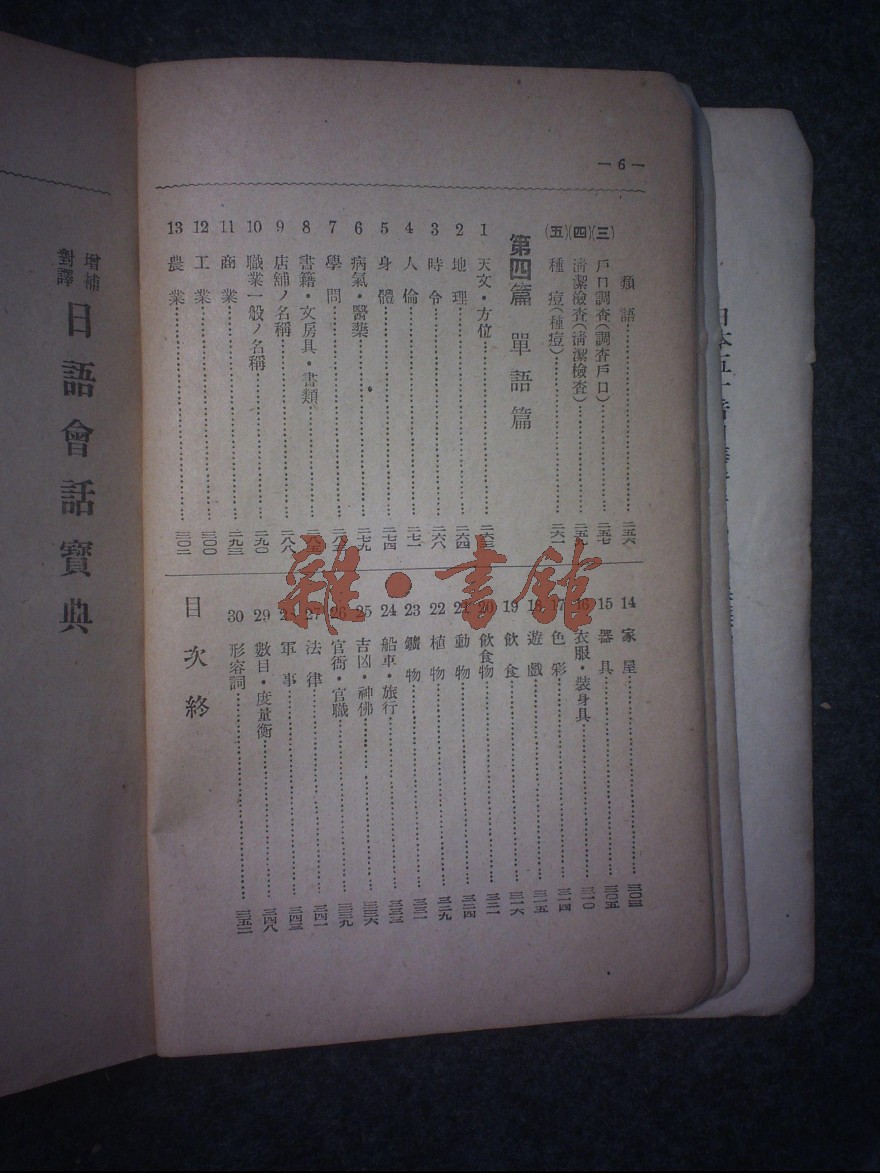 —6—
類語……二五六
(三) 戶口調查(調查戶口)……二五七
(四) 淸潔檢査(淸潔檢査)……二五九
(五) 種痘(種痘)……二六一
第四篇 單語篇
1 天文・方位……二六三
2 地理……二六四
3 時令……二六八
4 人倫……二七一
5 身體……二七四
6 病氣・醫藥……二七九
7 學問
8 書籍・文房具・書類
9 店舖ノ名稱……二八八
10 職業一般ノ名稱……二九〇
11 商業……二九三
12 工業……三〇〇
13 農業
14 家屋……三〇三
15 器具……三〇五
16 衣服・裝身具……三一〇
17 色彩……三一四
18 遊戲……三一五
19 飮食……三一六
20 飮食物……三二一
21 動物……三二四
22 植物……三二九
23 鑛物……三三一
24 船車・旅行……三三三
25 吉凶・神佛……三三六
26 官衙・官職……三三九
27 法律……三四一
28 軍事……三四三
29 數目・度量衡……三四八
30 形容詞……三五二
目次終
增補
對譯
日語會話寶典
雜・書館